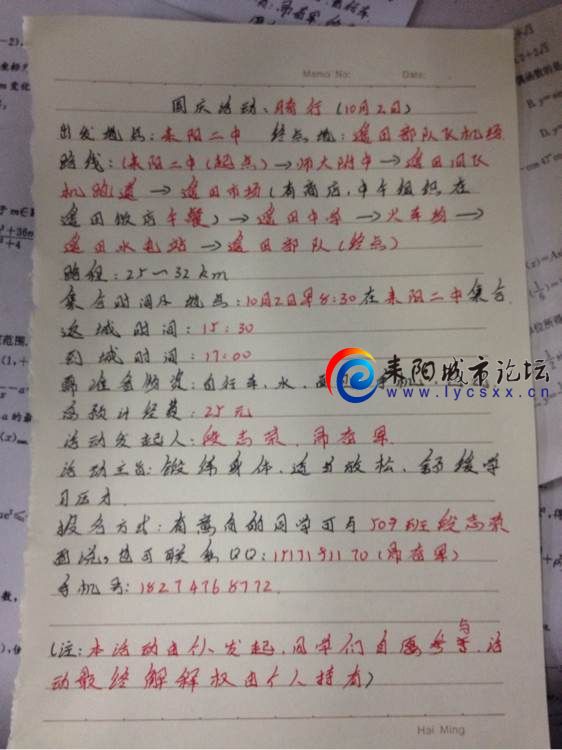 Memo No: Date:
国庆活动、骑行(10月2日)
出发地点:耒阳二中 终点地:遥田部队飞机场
路线:(耒阳二中(起点)→师大附中→遥田旧飞
机跑道→遥田市场(有商店,中午组织在
遥田饭店午餐)→遥田中学→火车站→
遥田水电站→遥田部队(终点)
路程:25—32km
集合时间及地点:10月2日早8:30在耒阳二中集合.
返城时间:15:30
到城时间:17:00
需准备物资:自行车,水,
总预计经费:25元
活动发起人:段志荣,
活动主旨:锻练身体,适当放松,舒缓学
习压力.
报名方式:有意向的同学可与509班段志荣
面说,也可联系QQ:
手机号:18274768772.
(注:本活动由个人发起,同学们自愿参与,活
动最终解释权由个人持有)
耒阳城市论坛
www.lycsxx.cn
Hai Ming